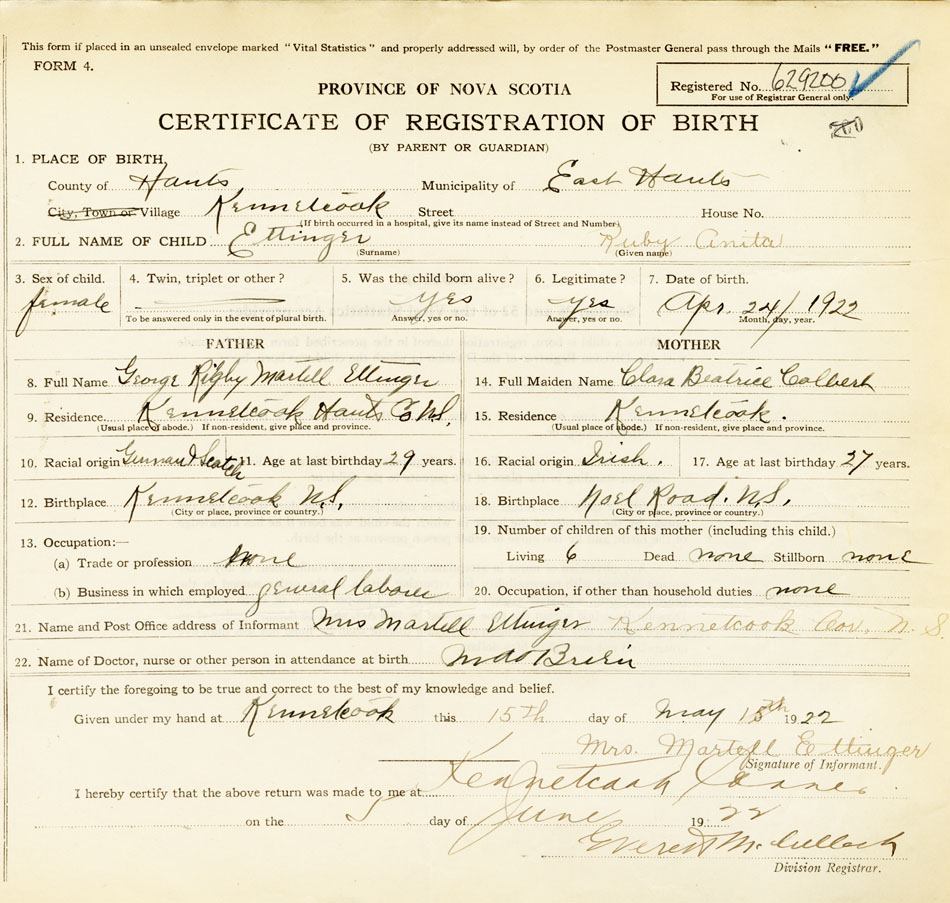 This form if placed in an unsealed envelope marked "Vital Statistics" and properly addressed will, by order of the Postmaster General pass through the Mails "FREE."
FORM 4.
Registered No. 629200
For use of Registrar General only.
PROVINCE OF NOVA SCOTIA
CERTIFICATE OF REGISTRATION OF BIRTH
(BY PARENT OR GUARDIAN)
1. PLACE OF BIRTH,
County of Hants Municipality of East Hants
City, Town or Village Kennetcook Street House No.
(If birth occurred in a hospital, give its name instead of Street and Number)
2. FULL NAME OF CHILD Ettinger Ruby Anita
(Surname) (Given name)
3. Sex of child. 4. Twin, triplet or other? 5. Was the child born alive? 6. Legitimate? 7. Date of birth.
female yes yes Apr. 24/1922
To be answered only in the event of plural birth. Answer, yes or no. Answer, yes or no. Month, day, year.
FATHER MOTHER
8. Full Name George Rigby Martell Ettinger 14. Full Maiden Name Clara Beatrice Colbert
9. Residence Kennetcook Hants Co N.S. 15. Residence Kennetcook.
(Usual place of abode.) If non-resident, give place and province. (Usual place of abode.) If non-resident, give place and province.
10. Racial origin German & Scotch 11. Age at last birthday 29 years. 16. Racial origin Irish. 17. Age at last birthday 27 years.
12. Birthplace Kennetcook N.S. 18. Birthplace Noel Road. N.S.
(City or place, province or country.) (City or place, province or country.)
13. Occupation:— 19. Number of children of this mother (including this child.)
(a) Trade or profession none Living 6 Dead none Stillborn none
(b) Business in which employed general laborer 20. Occupation, if other than household duties none
21. Name and Post Office address of Informant Mrs Martell Ettinger Kennetcook Cor. N. S.
22. Name of Doctor, nurse or other person in attendance at birth
I certify the foregoing to be true and correct to the best of my knowledge and belief.
Given under my hand at Kennetcook this 15th day of May 15th 1922
Mrs. Martell Ettinger
Signature of Informant.
I hereby certify that the above return was made to me at Kennetcook Corner
on the 5 day of June 19 22
Everett McCulloch
Division Registrar.